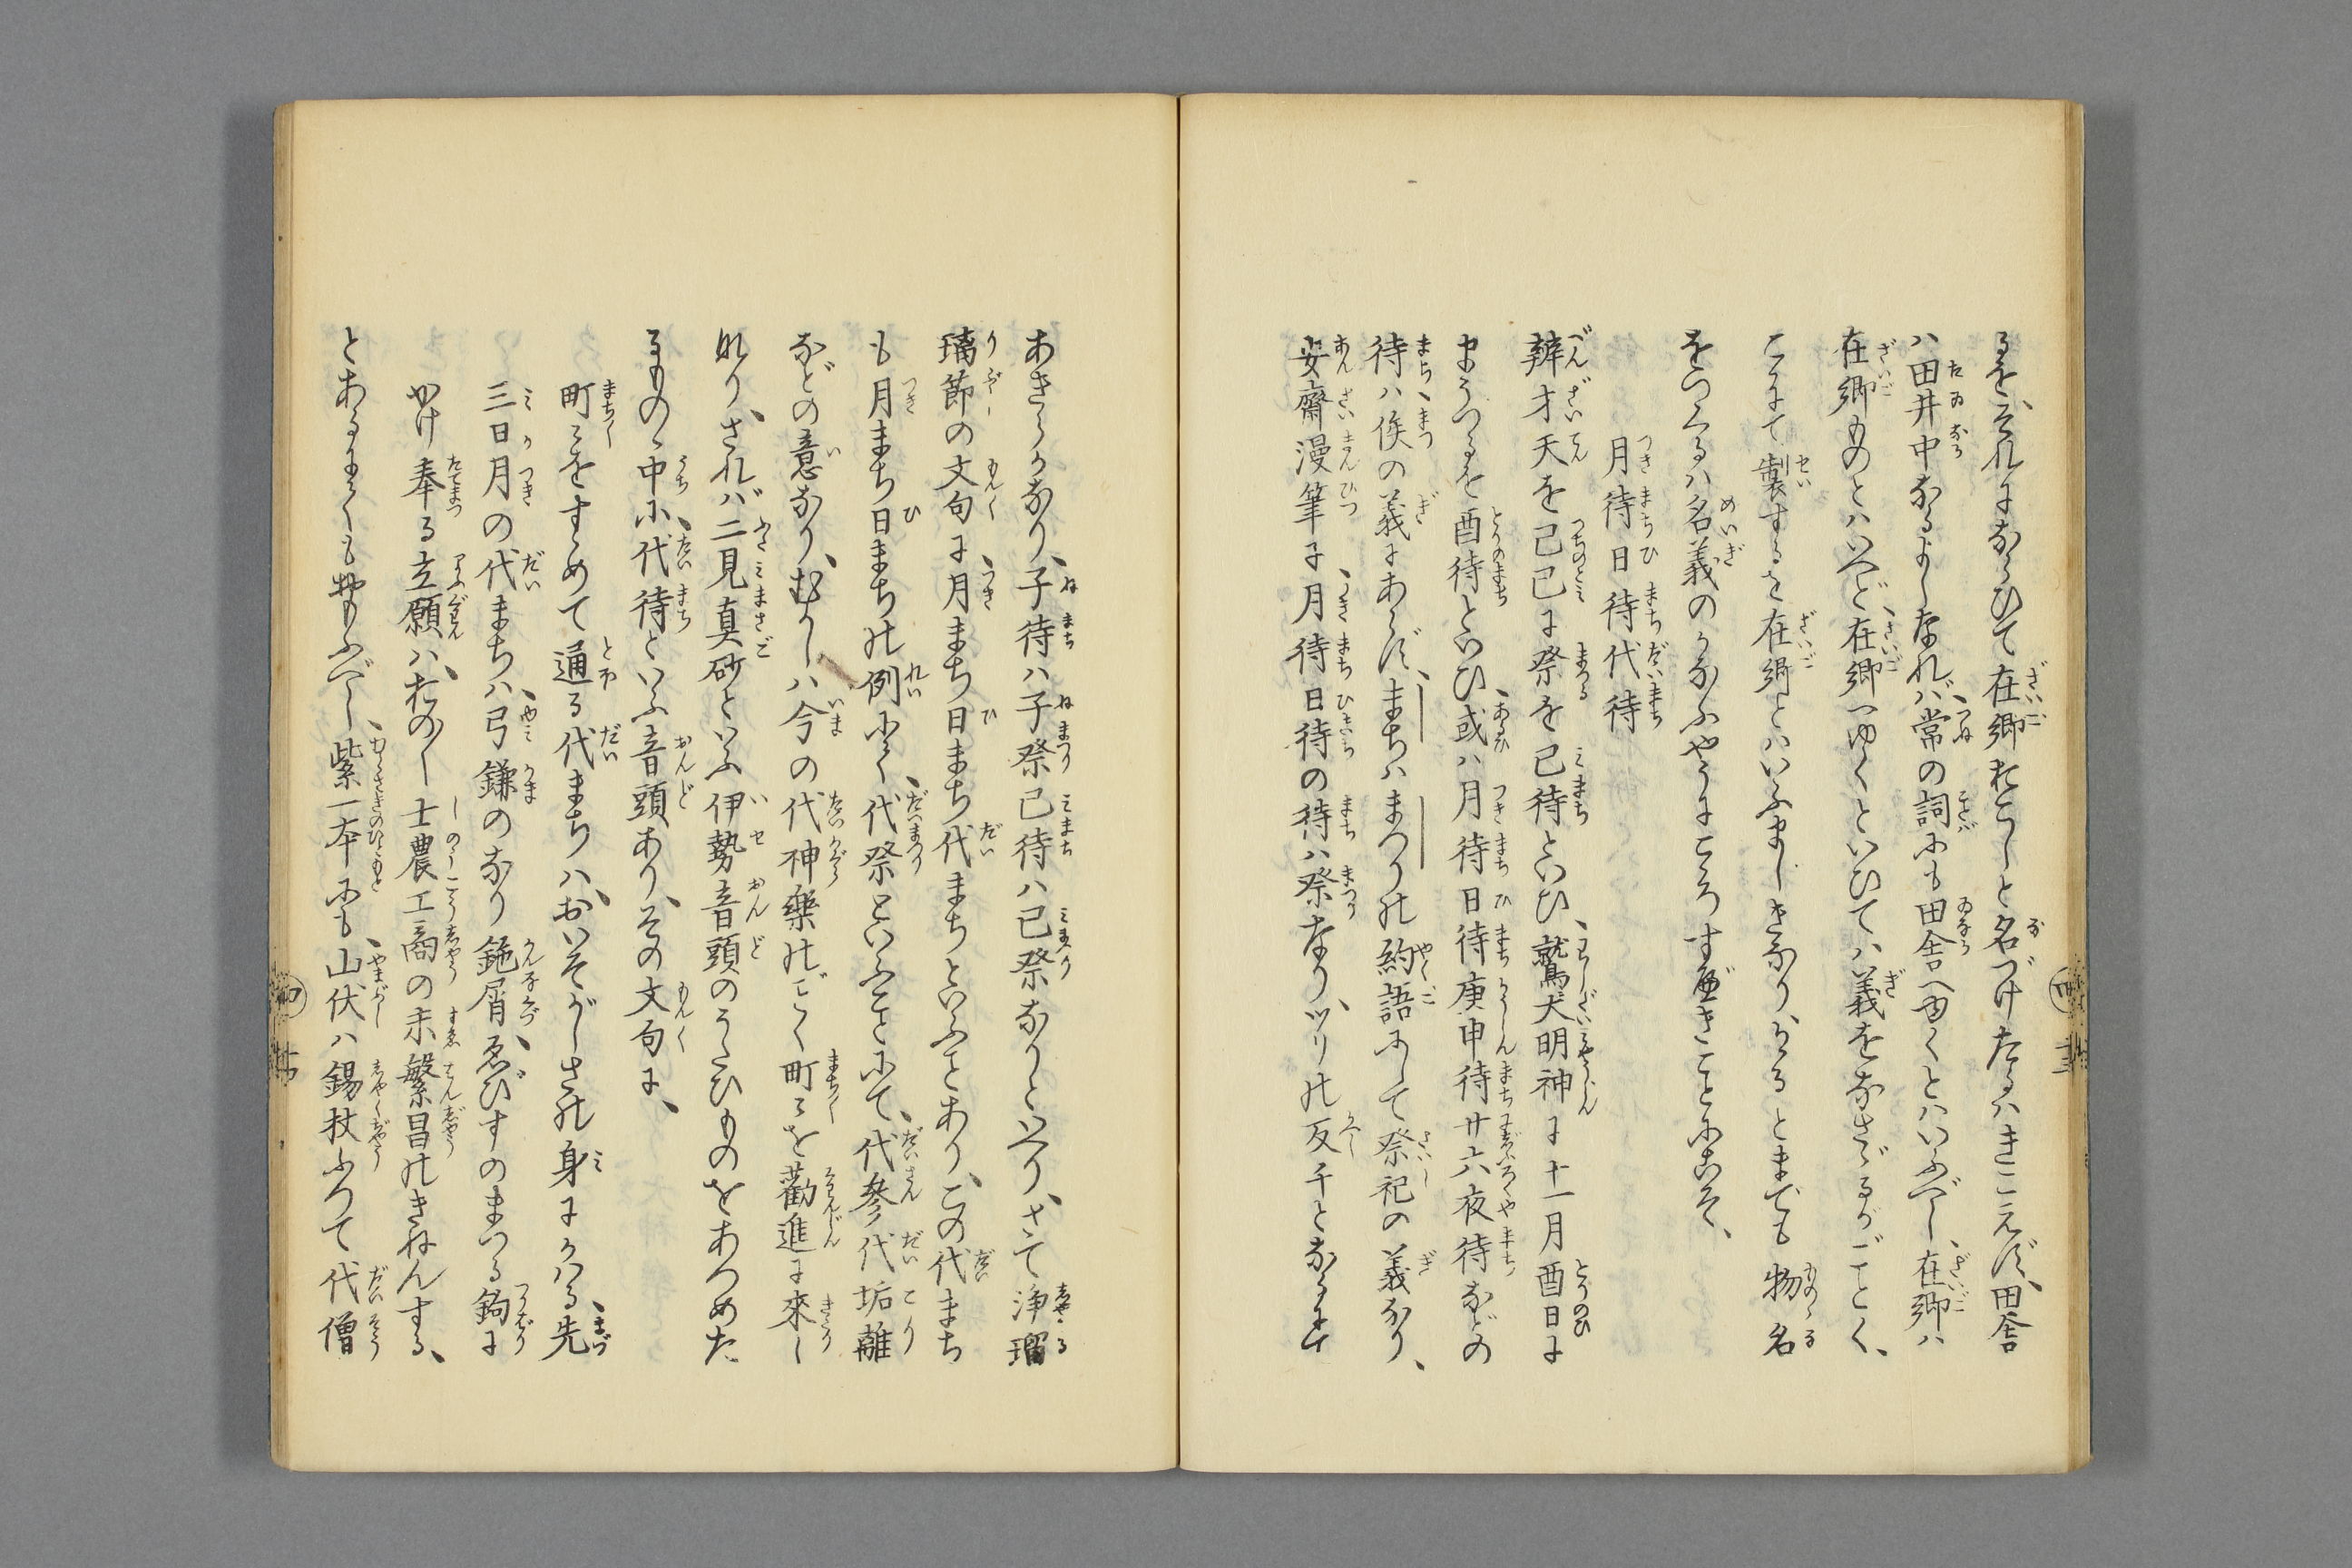 るを、それにならひて在郷おこしと名づけたるハきこえず、田舎
ハ田井中なるよしなれバ、常の詞にも田舎へゆくとハいふべし、在郷ハ
在郷ものとハいへど、在郷へゆくといひてハ義をなさゞるがごとく、
こゝにて製するを在郷とハいふまじきなり、かゝるとまでも物名
をつくるハ名義のかなふやうにころすべきことにこそ、
月待日待代待
辨才天を己巳に祭を巳待といひ、鷲大明神に十一月酉日に
まうづるを酉待といひ、或ハ月待日待庚申待廿六夜待などの
待ハ俟の義にあらず、まちハまつりの約語にして祭祀の義なり、
安齋漫筆に月待日待の待ハ祭なり、ツリの反チとなるにて
あきらかなり、子待ハ子祭巳待ハ巳祭なりといへり、さて浄瑠
璃節の文句に月まち日まち代まちといふことあり、この代まち
も月まち日まちの例にて、代祭といふことにて、代参代垢離
などの意なり、むかしハ今の代神樂のごとく町〻を勸進に來し
なり、されバ二見真砂といふ伊勢音頭のうたひものをあつめた
るものゝ中に、代待といふ音頭あり、その文句に、
町〻をすゝめて通る代まちハ、おいそがしさの身にかハる、先
三日月の代まちハ、弓鎌のなり鉋屑、ゑびすのまつる鉤に
かけ奉る立願ハ、たのし士農工商の末繁昌のきねんする、
とあるにても おもふべし、紫一本にも、山伏ハ錫杖ふつて代僧